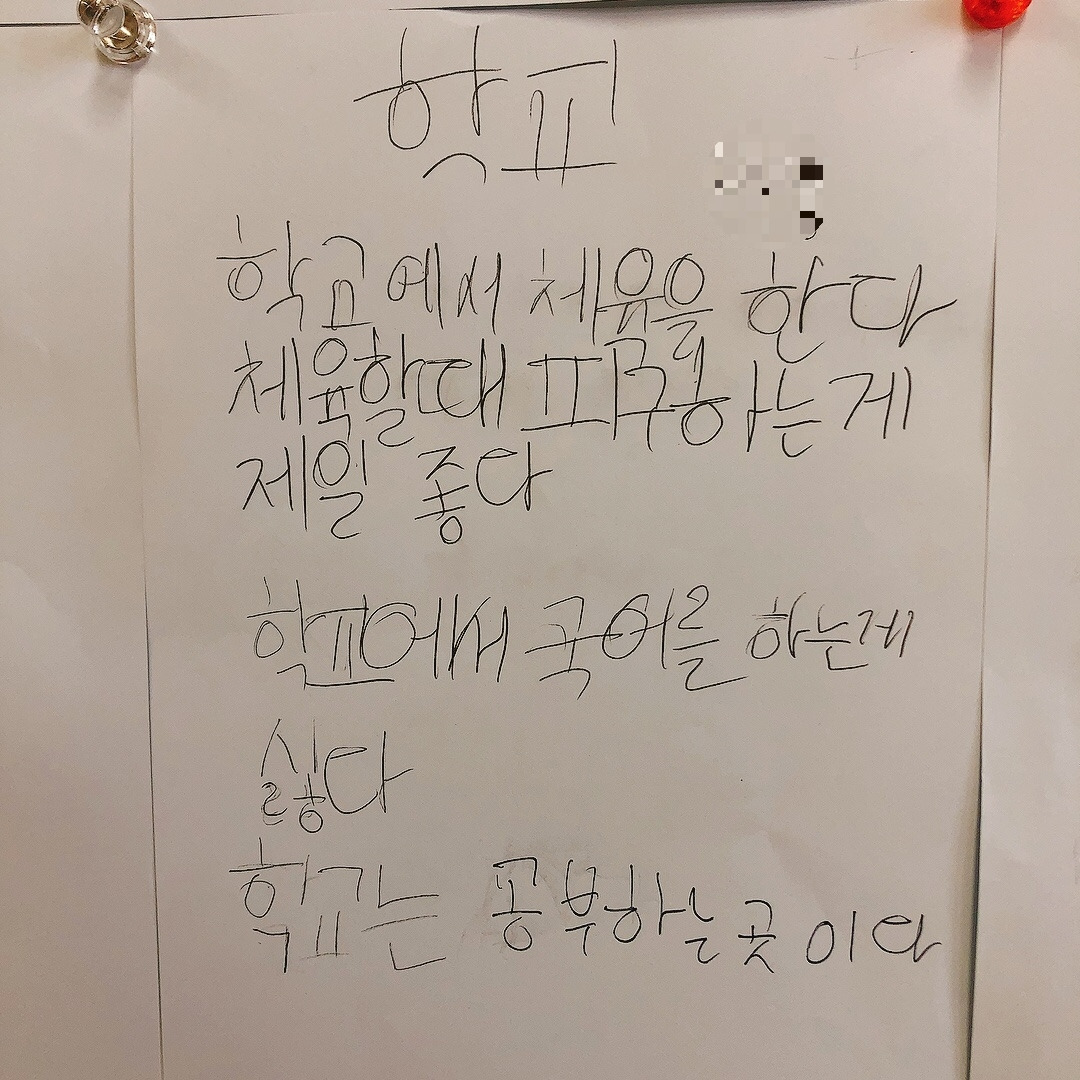 학교
학교에서 체육을 한다
체육할때 피구를하는게
제일 좋다
학교에서 국어를 하는게
싫다
학교는 공부하는곳이다